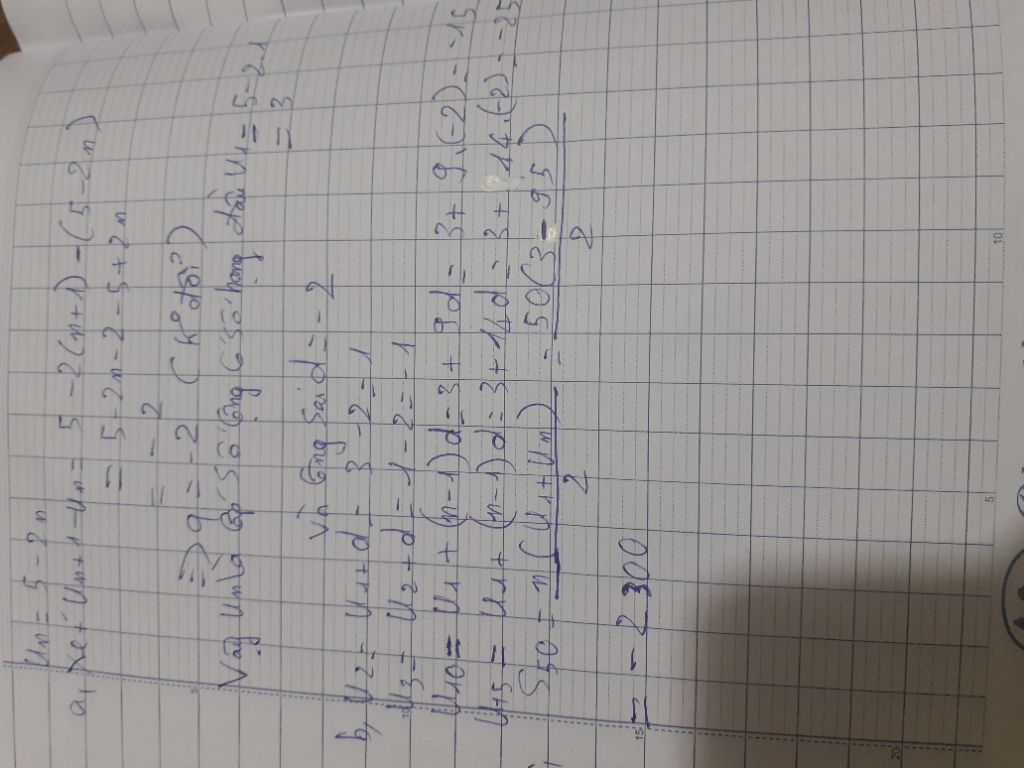 Un = 5 - 2n
a, Xét Un+1 - Un = 5 - 2(n+1) - (5 - 2n)
= 5 - 2n - 2 - 5 + 2n
= - 2
=> q = -2 (K° đổi)
Vậy Un là cấp số cộng có số hạng đầu U1 = 5 - 2.1
= 3
và công sai d = - 2
b, U2 = U1 + d = 3 - 2 = 1
U3 = U2 + d = 1 - 2 = -1
U10 = U1 + (n-1)d = 3 + 9d = 3 + 9.(-2) = -15
U15 = U1 + (n-1)d = 3 + 14d = 3 + 14.(-2) = -25
S50 = n(U1 + Un) / 2 = 50(3 - 95) / 2
= - 2300
5
10
15
5
10